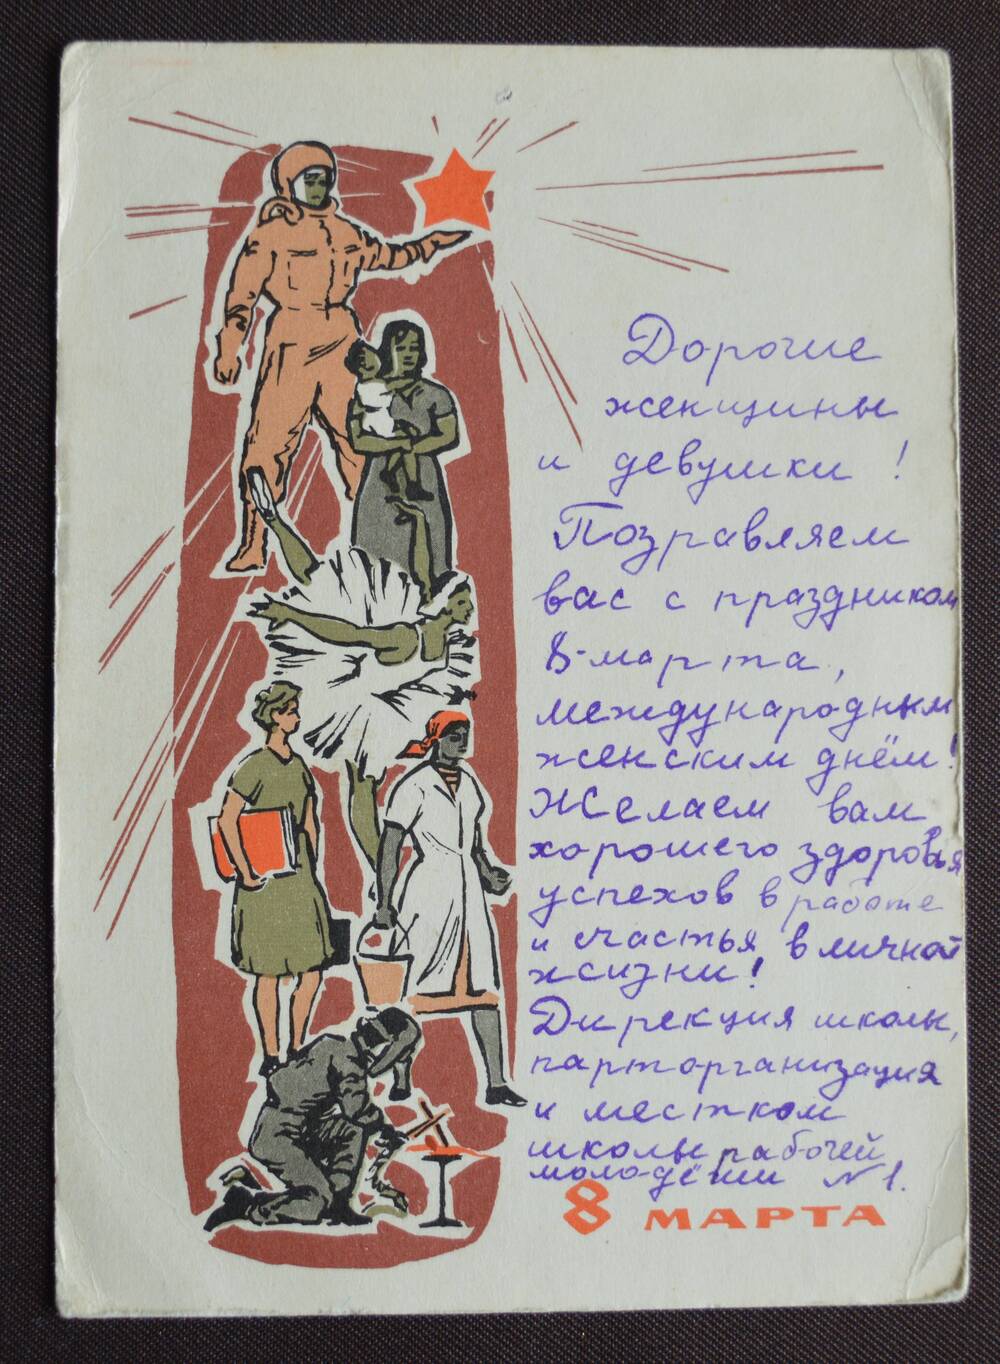 Дорогие
женщины
и девушки!
Поздравляем
вас с праздником
8-марта,
международным
женским днём!
Желаем вам
хорошего здоровья
успехов в работе
и счастья в личной
жизни!
Дирекция школы,
парторганизация
и местком
школы рабочей
молодёжи №1.
8 МАРТА